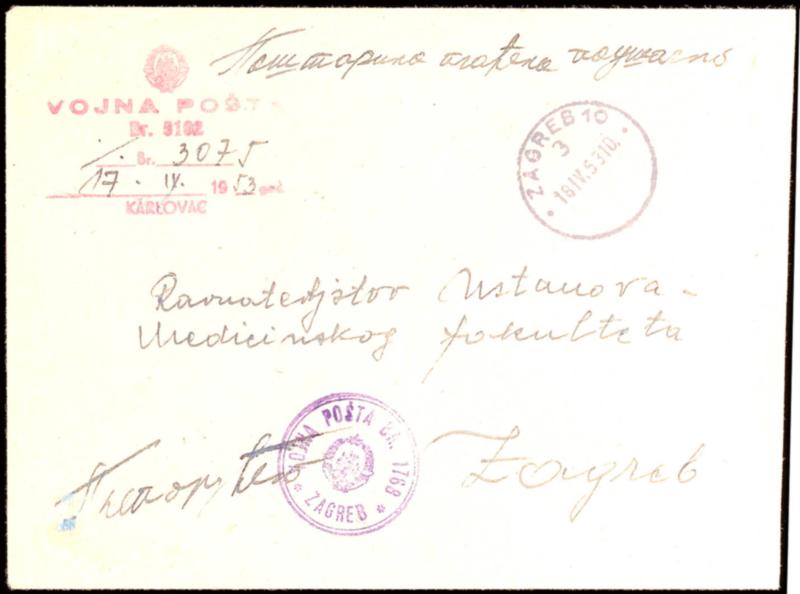 Поштарина плаћена паушално
VOJNA POŠTA
Br. 5102
Br. 3075
17 - IV. 1953 god.
KARLOVAC
ZAGREB 10
3
18IV.5310.
Ravnateljstvo Ustanova -
Medicinskog fakulteta
Препоручено
VOJNA POŠTA BR. 1168
ZAGREB
Zagreb